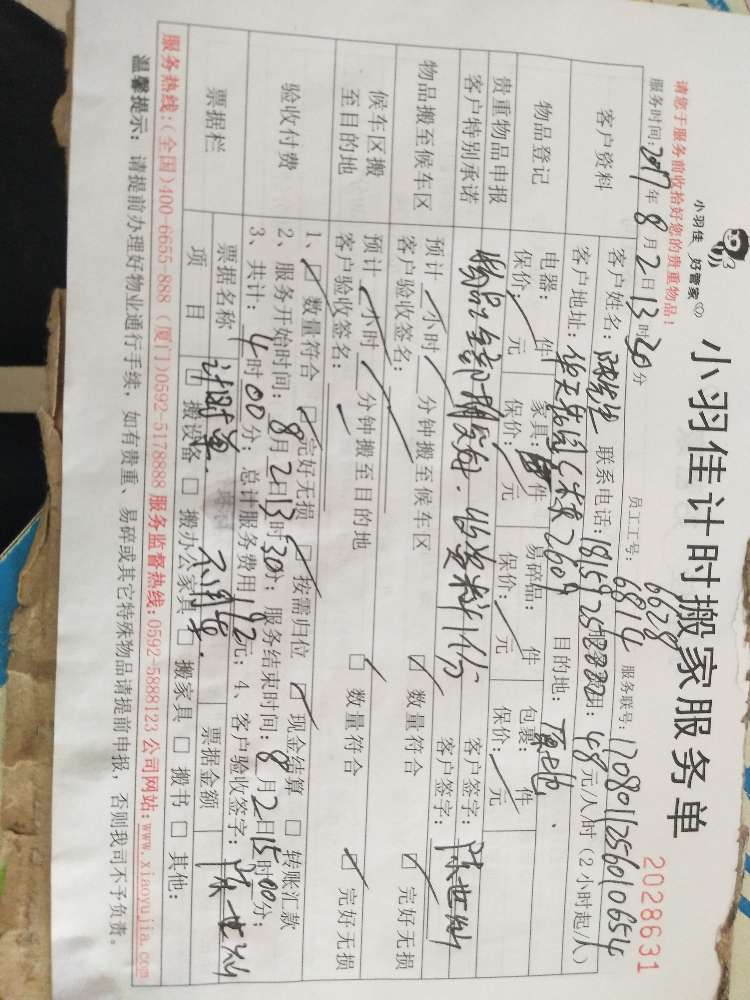 小羽佳计时搬家服务单
2028631
小羽佳 好管家
请您于服务前收拾好您的贵重物品!
员工工号: 6628
6814
服务联号: 1708011256010654
服务时间: 2017年8月2日13时30分
客户资料
客户姓名: 陈先生 联系电话: 服务费用: 48元/小时(2小时起/人)
客户地址: 目的地: 原地
物品登记
电器: 件 家具: 件 易碎品: 件 包裹: 件
保价: 元 保价: 元 保价: 元 保价: 元
贵重物品申报
客户特别承诺
客户签字:
物品搬至候车区
预计 小时 分钟搬至候车区 □ 数量符合 □ 完好无损
客户验收签名: 客户签字:
候车区搬
至目的地
预计 小时 分钟搬至目的地 □ 数量符合 □ 完好无损
客户验收签名:
验收付费
1、□ 数量符合 □ 完好无损 □ 按需归位 □ 现金结算 □ 转账汇款
2、服务开始时间: 8月2日13时30分; 服务结束时间: 8月2日15时00分;
3、共计: 4时00分; 总计服务费用192元; 4、客户验收签字:
票据栏
票据名称 计时单 票据金额
项目 □ 搬设备 □ 搬办公家具 □ 搬家具 □ 搬书 □ 其他:
服务热线:(全国)400-6655-888 (厦门)0592-5178888 服务监督热线:0592-5888123 公司网站:www.xiaoyujia.com
温馨提示: 请提前办理好物业通行手续, 如有贵重、易碎或其它特殊物品请提前申报, 否则我司不予负责。